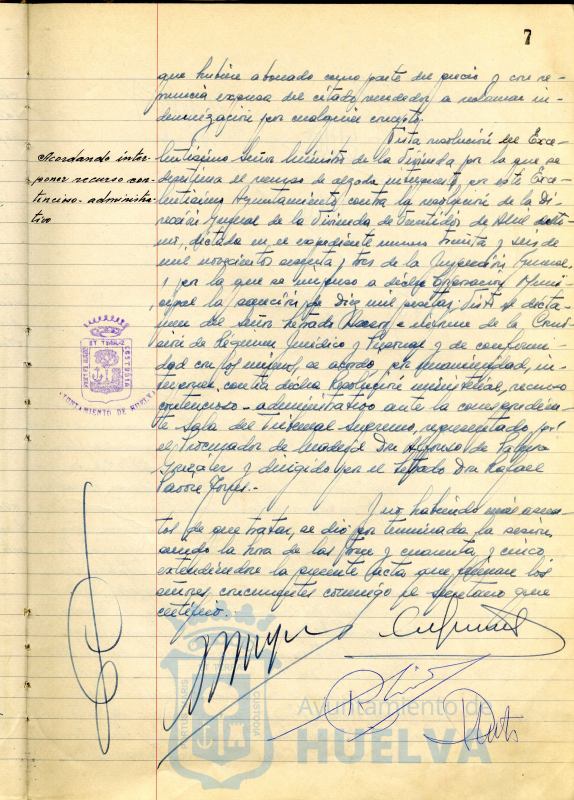 7
que hubiere abonado como parte del precio y con re-
nuncia expresa del citado vendedor a reclamar in-
demnización por cualquier concepto.
Acordando inter-
poner recurso con-
tencioso-administra-
tivo
Vista resolución del Exce-
lentísimo Señor Ministro de la Vivienda por la que se
desestima el recurso de alzada interpuesto por este Exce-
lentísimo Ayuntamiento contra la resolución de la Di-
rección General de la Vivienda de veintidós de Abril
dictada en el expediente número treinta y seis de
mil novecientos sesenta y tres de la Inspección General,
y por la que se impuso a dicha Corporación Muni-
cipal la sanción de diez mil pesetas. Visto el dicta-
men del señor Letrado Asesor e informe de la Comi-
sión de Régimen Jurídico y Personal y de conformi-
dad con los mismos, se acordó, por unanimidad, in-
terponer contra dicha Resolución ministerial, recurso
contencioso-administrativo ante la correspondien-
te Sala del Tribunal Supremo, representado por
el Procurador de Madrid Don Alfonso de Palma
González y dirigido por el Letrado Don Rafael
Y no habiendo más asun-
tos de que tratar, se dió por terminada la sesión,
siendo la hora de las trece y cuarenta y cinco,
extendiéndose la presente Acta que firman los
señores concurrentes conmigo el Secretario que
certifico.
AYUNTAMIENTO DE HUELVA
PORTUS MARIS ET TERRAE CUSTODIA
Ayuntamiento de
HUELVA